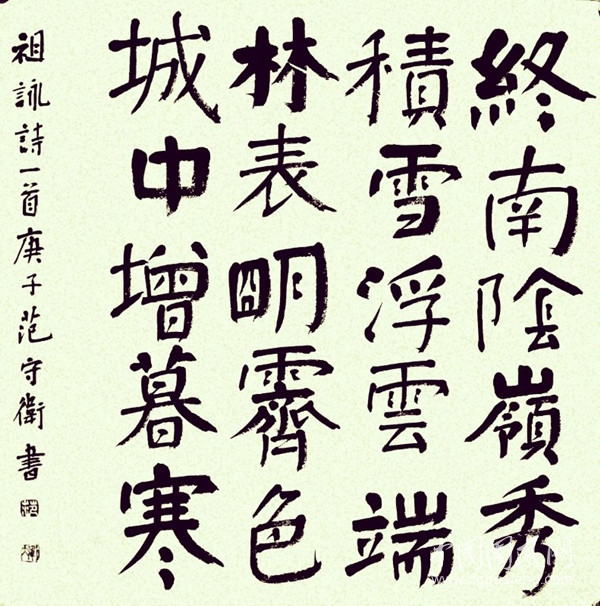 終南陰嶺秀
積雪浮雲端
林表明霽色
城中增暮寒
祖詠詩一首庚子范守衛書